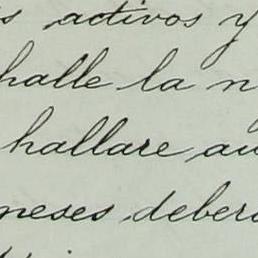 s activos y
halle la n
hallare au
meses deber